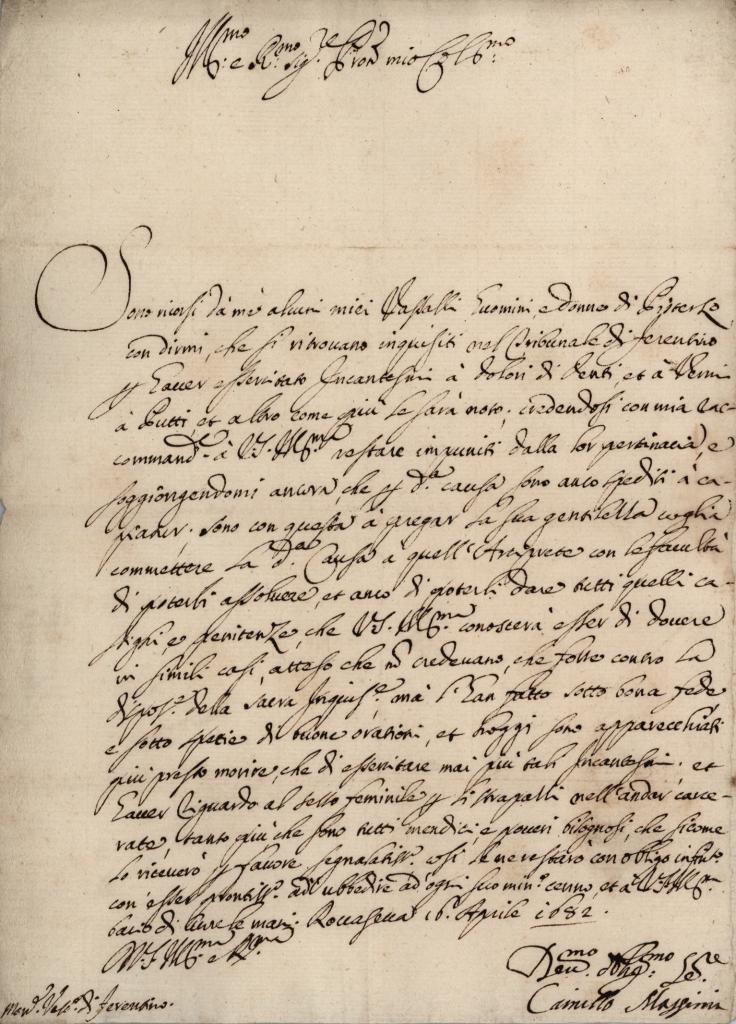 Ill.mo e R.mo Sig.re Pron mio Col.mo
Sono ricorsi da me alcuni miei Vassalli huomini, e donne di Pisterzo
con dirmi, che si ritrovano inquisiti nel Tribunale di ferentino
p haver essercitato Incantesmi à dolori di denti, et à Vermi
à Putti, et altro come più le sarà noto; credendosi con mia rac-
command.ne à V.S. Ill.ma restare impuniti dalla lor pertinacia, e
soggiongendomi ancora, che p d.a causa sono anco spediti à ca-
piatur. sono con questa à pregar la sua gentilezza voglia
commettere la d.a Causa à quell'Arciprete con le facultà
di poterli assolvere, et anco di poterli dare tutti quelli ca-
stighi, e penitenze, che V.S. Ill.ma conoscerà esser di dovere
in simili casi, atteso che no credevano, che fosse contro la
dispos.e della sacra Inquis.e, mà l'han fatto sotto bona fede
e sotto spetie di buone orationi, et hoggi sono apparecchiati
più presto morire, che di essercitare mai più tali Incantesmi. et
haver riguardo al sesso feminile p li strapazzi nell'andar carce-
rate, tanto più che sono tutti mendici, e poveri bisognosi, che sicome
lo riceverò p favore segnalatiss.o così le ne restarò con obligo infin.to
con esser prontiss.o ad ubbedire ad ogni suo min.o cenno, et à V.S. Ill.ma
bacio di cuore le mani. Roccasecca 16 Aprile 1682.
D. V.S. Ill.ma e R.ma
Dev.mo Oblig.mo Se.re
Camillo Massimi
Mon.r Vesc.o di ferentino.